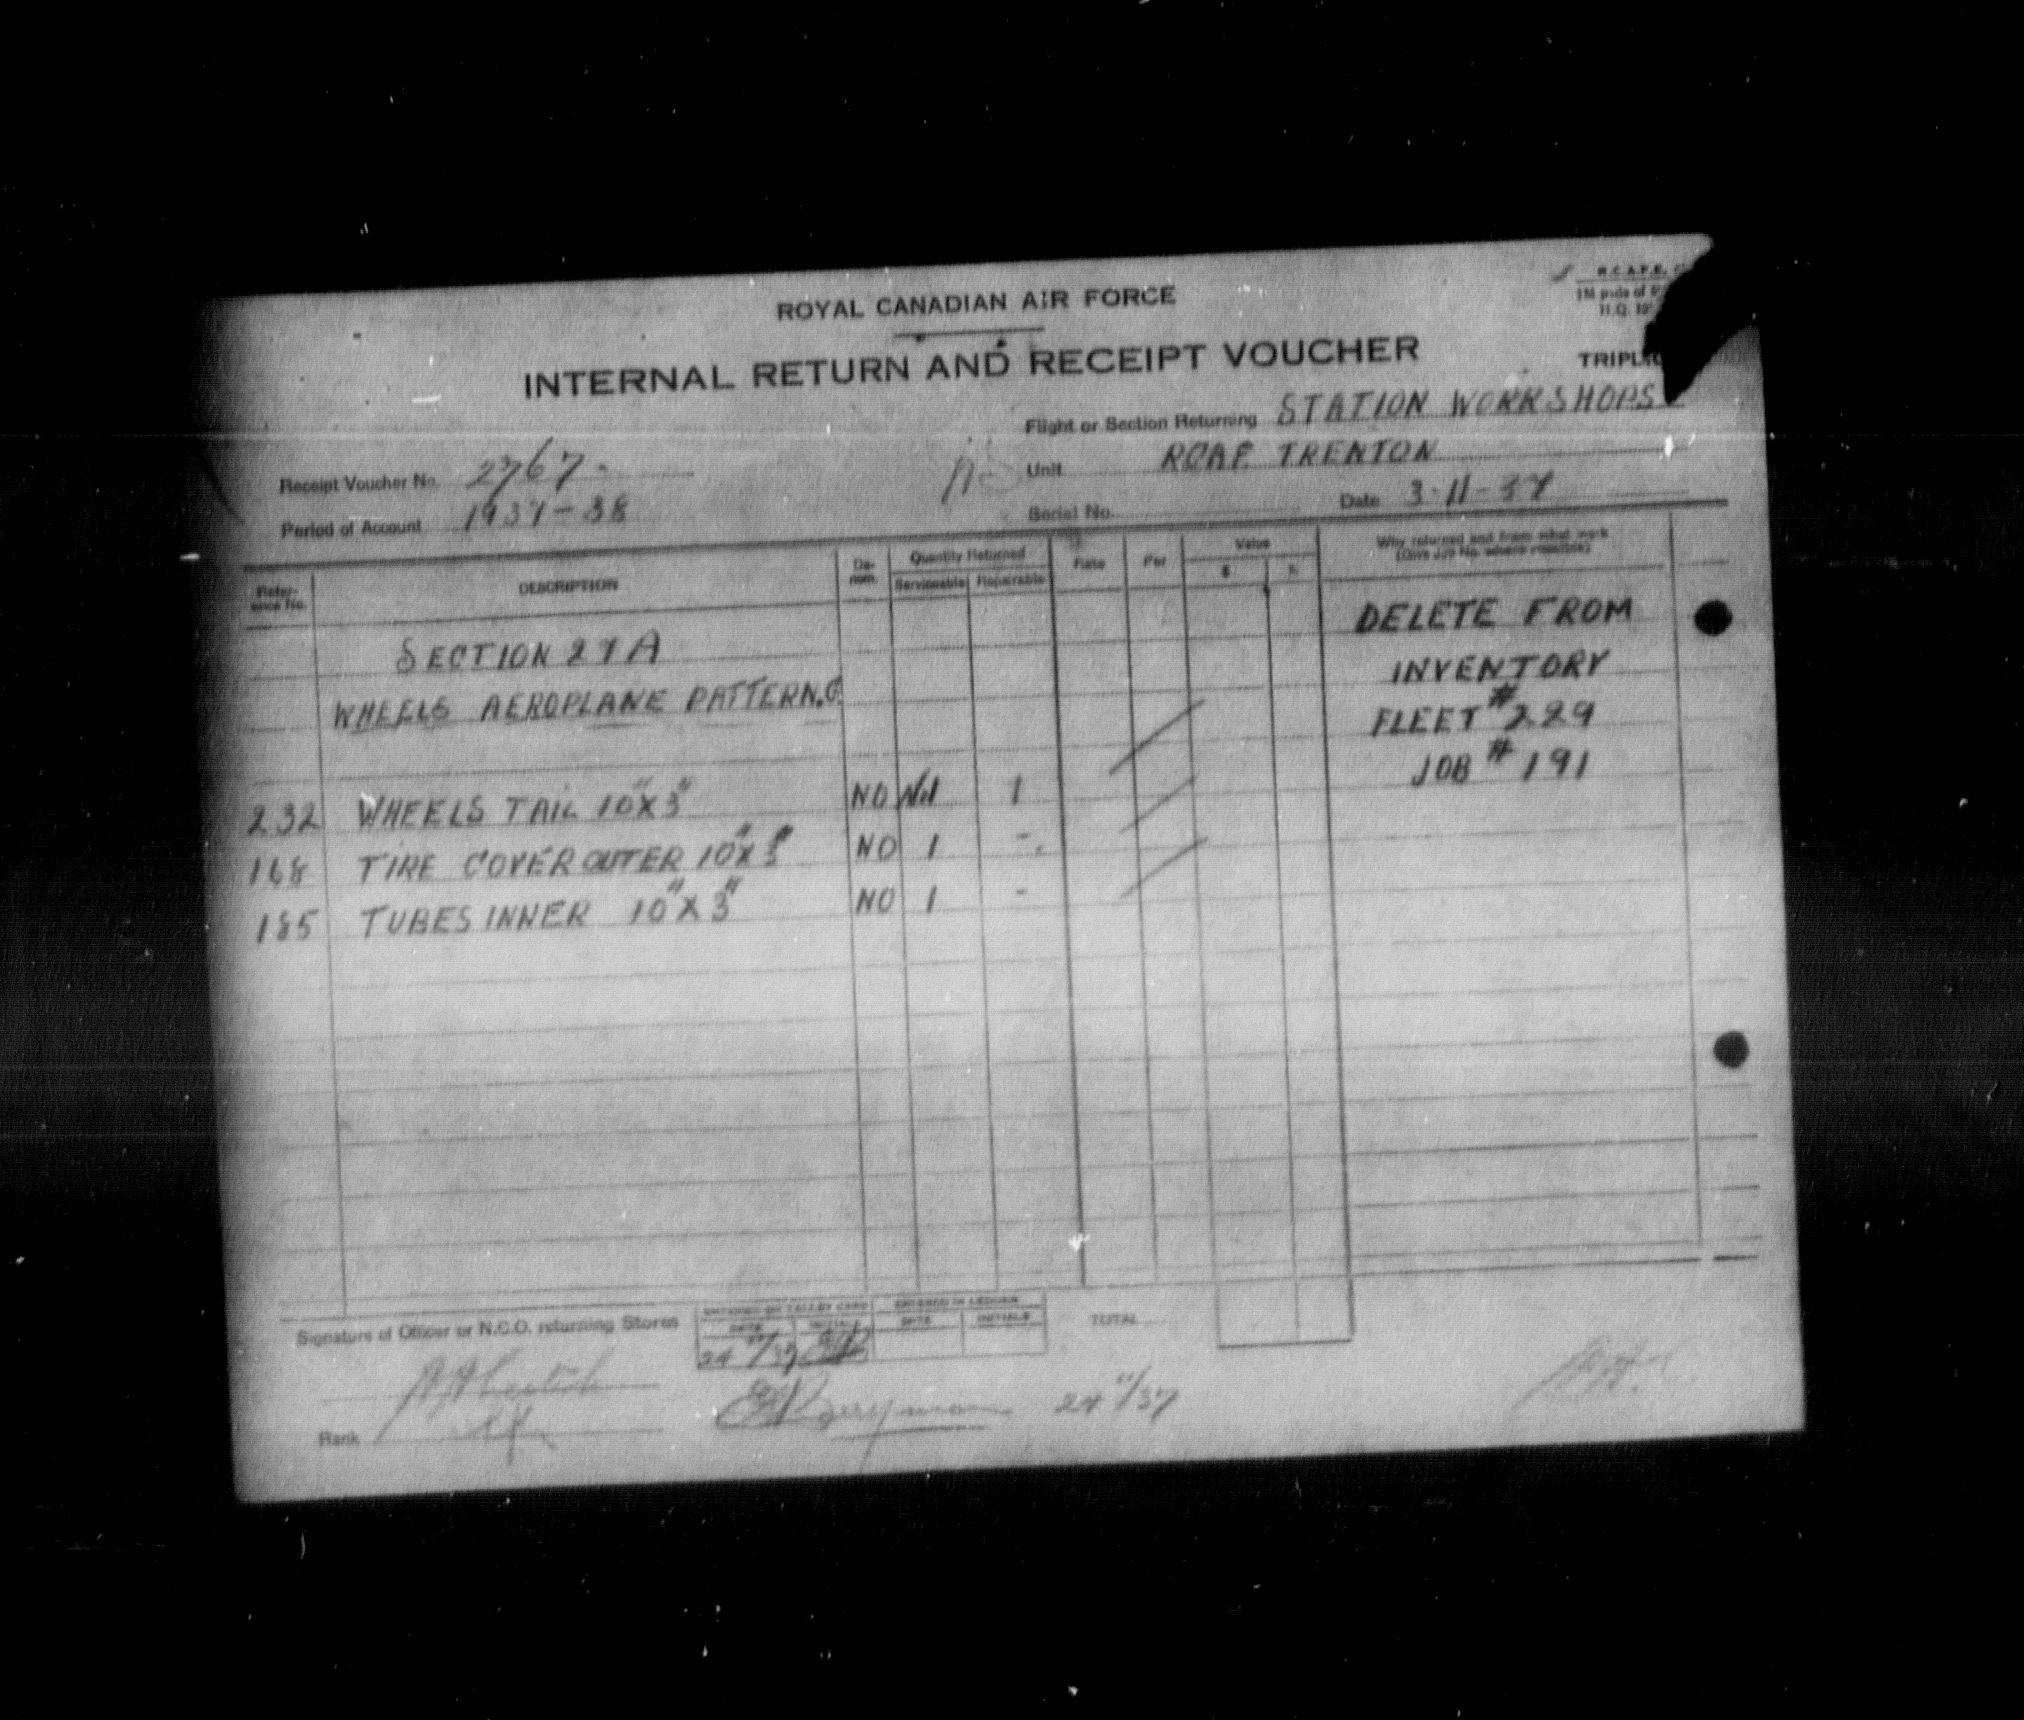 R.C.A.F. E.
1M pads of
H.Q.
ROYAL CANADIAN AIR FORCE
INTERNAL RETURN AND RECEIPT VOUCHER
TRIPLIC
Flight or Section Returning STATION WORKSHOPS
Receipt Voucher No. 2767.
Unit RCAF TRENTON
Period of Account 1937-38
Serial No. Date 3-11-37
Reference No. DESCRIPTION Denom. Quantity Returned Serviceable Repairable Rate Per Value $ c. Why returned and from what work (Give Job No. where possible)
SECTION 27A DELETE FROM
WHEELS AEROPLANE PATTERN.C. INVENTORY
FLEET #229
JOB #191
232 WHEELS TAIL 10"X3" NO Nil 1
168 TIRE COVER OUTER 10"X3" NO 1 -
185 TUBES INNER 10"X3" NO 1 -
Signature of Officer or N.C.O. returning Stores
ENTERED ON TALLEY CARD ENTERED IN LEDGER
DATE INITIAL DATE INITIALS
24 11/37
TOTAL
24 11/37
Rank